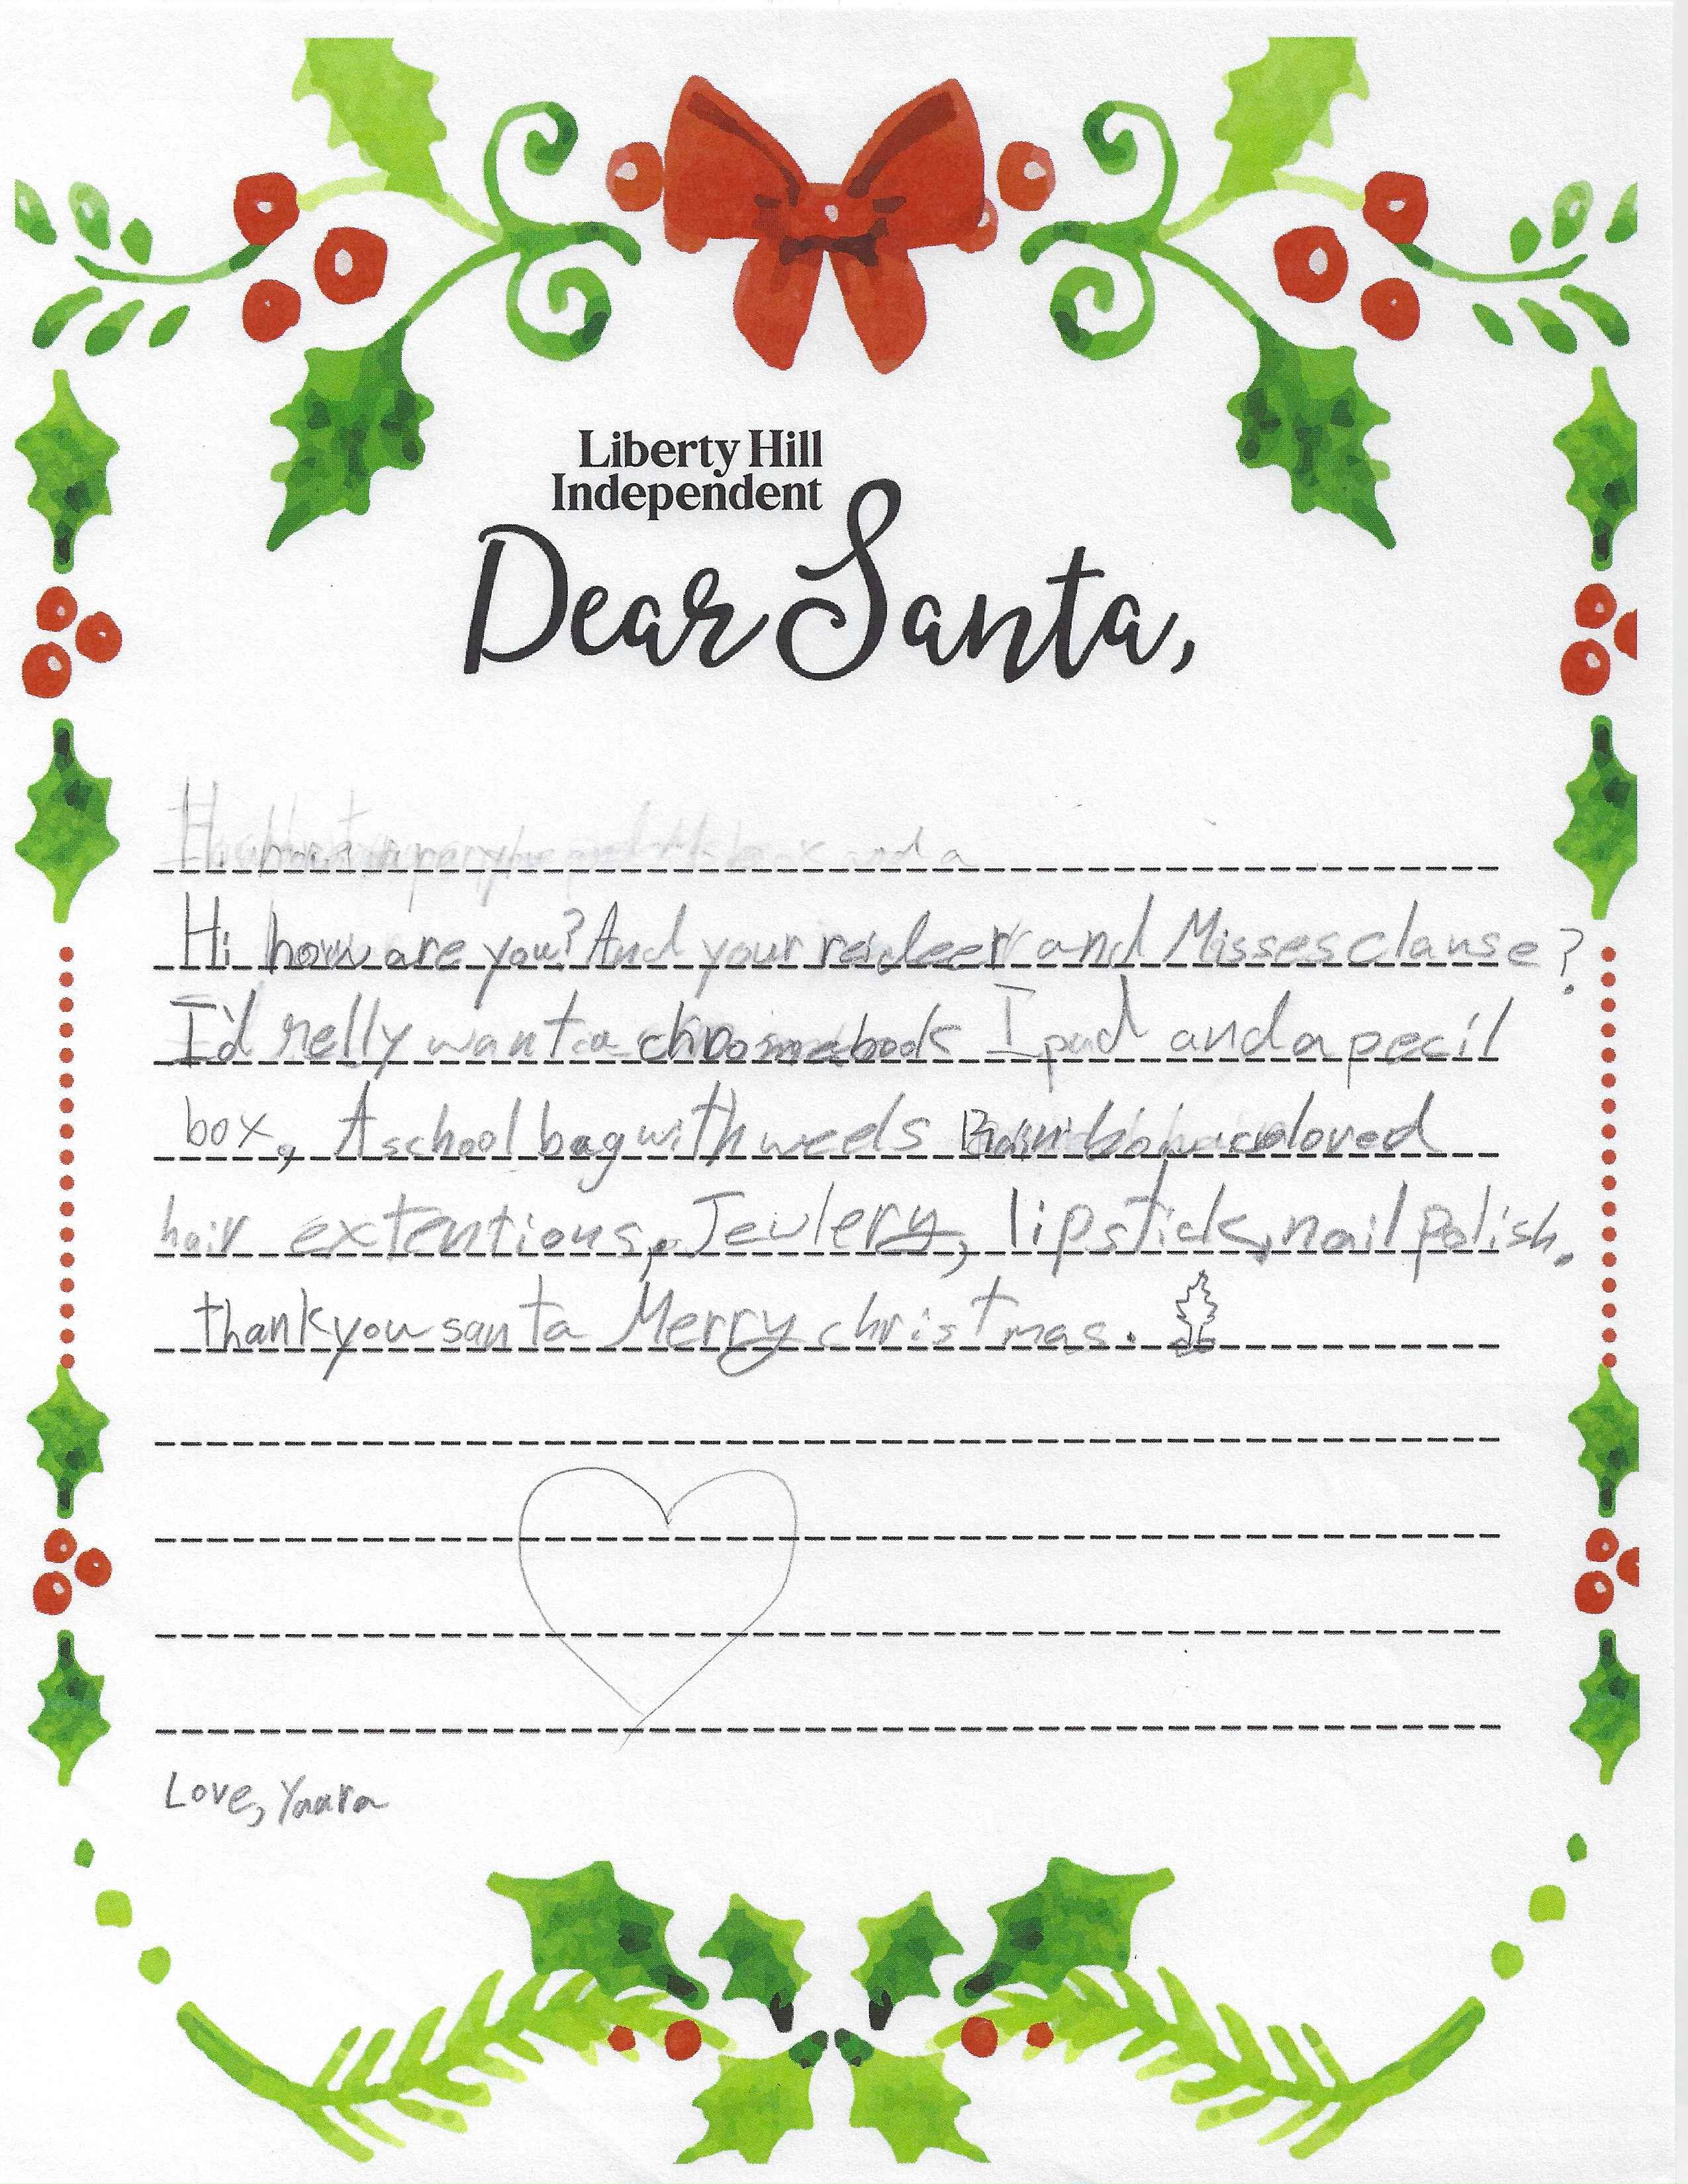 Liberty Hill
Independent
Dear Santa,
and a
Hi how are you? And your reideer and Misses clause?
I'd relly want a chromebook Ipad and a pecil
box, A school bag with weels Rainbow colored
hair extentions, Jewlery, lipstick, nail polish.
thank you santa Merry christmas.
Love, Yaara